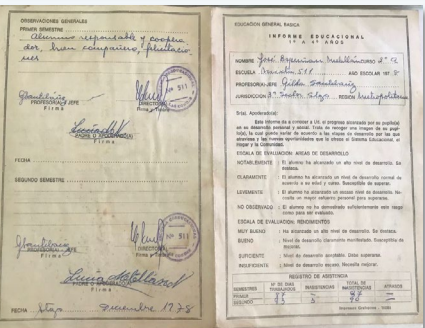 OBSERVACIONES GENERALES
PRIMER SEMESTRE
Alumno responsable y coopera
dor, buen compañero, felicitacio
nes
PROFESOR(A) JEFE
Firma
DIRECTOR
Firma y Timbre
Nº 511
PADRE O APODERADO(A)
Firma
FECHA
SEGUNDO SEMESTRE
PROFESOR(A) JEFE
Firma
DIRECTOR
Nº 511
PADRE O APODERADO(A)
Firma
FECHA Stgo Diciembre 1978
EDUCACION GENERAL BASICA
INFORME EDUCACIONAL
1º A 4º AÑOS
NOMBRE José CURSO
ESCUELA 511 AÑO ESCOLAR 197 8
PROFESOR(A) JEFE Gilda
JURISDICCION Stgo REGION Metropolitana
Sr(a). Apoderado(a):
Este informe da a conocer a Ud. el progreso alcanzado por su pupilo(a)
en su desarrollo personal y social. Trata de recoger una imagen de su pupi-
lo(a), la cual puede variar de acuerdo a las etapas de desarrollo por las que
atraviesa y las nuevas oportunidades que le ofrece el Sistema Educacional, el
Hogar y la Comunidad.
ESCALA DE EVALUACION: AREAS DE DESARROLLO
NOTABLEMENTE : El alumno ha alcanzado un alto nivel de desarrollo. Se
destaca.
CLARAMENTE : El alumno ha alcanzado un nivel de desarrollo normal de
acuerdo a su edad y curso. Susceptible de superar.
LEVEMENTE : El alumno ha alcanzado un escaso nivel de desarrollo. Ne-
cesita un mayor esfuerzo personal para superarse.
NO OBSERVADO : El alumno no ha manifestado suficientemente este rasgo
como para ser evaluado.
ESCALA DE EVALUACION: RENDIMIENTOS
MUY BUENO : Ha alcanzado un alto nivel de desarrollo. Se destaca.
BUENO : Nivel de desarrollo claramente manifestado. Susceptible de
mejorar.
SUFICIENTE : Nivel de desarrollo aceptable. Debe superarse.
INSUFICIENTE : Nivel de desarrollo escaso. Necesita mejorar.
REGISTRO DE ASISTENCIA
SEMESTRES Nº DE DIAS TRABAJADOS INASISTENCIAS TOTAL DE INASISTENCIAS ATRASOS
PRIMER
SEGUNDO